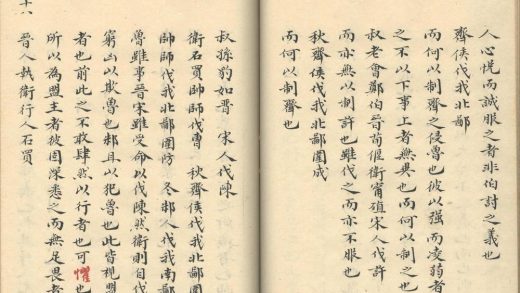 人心悅而誠服之者非伯討之義也
齊侯伐我北鄙
而何以制齊之侵魯也彼以強而凌弱者
之不以下事上者無異也而何以制之也
叔老會鄭伯晉荀偃衛甯殖宋人伐許
而亦無以制許也雖伐之而亦不服也
秋齊侯伐我北鄙圍成
而何以制齊也
叔孫豹如晉 宋人伐陳
衛石買帥師伐曹 秋齊侯伐我北鄙圍
帥師伐我北鄙圍防 冬邾人伐我南鄙
魯雖事晉宋雖受命以伐陳然衛則自伐
窮凶以欺魯也邾且以犯魯也此皆視盟
者也前此之不敢肆然以行者也可懼也
所以為盟主者彼固深悉之而無足畏者
晉人執衛行人石買
十六